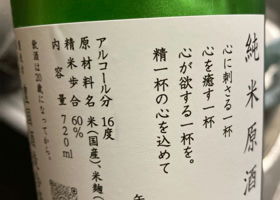 純米原酒
心に刺さる一杯
心を癒す一杯
心が欲する一杯を。
精一杯の心を込めて
アルコール分 16度
原材料名 米(国産)、米麹(
精米歩合 60%
内容量 720ml
飲酒は20歳になってから。